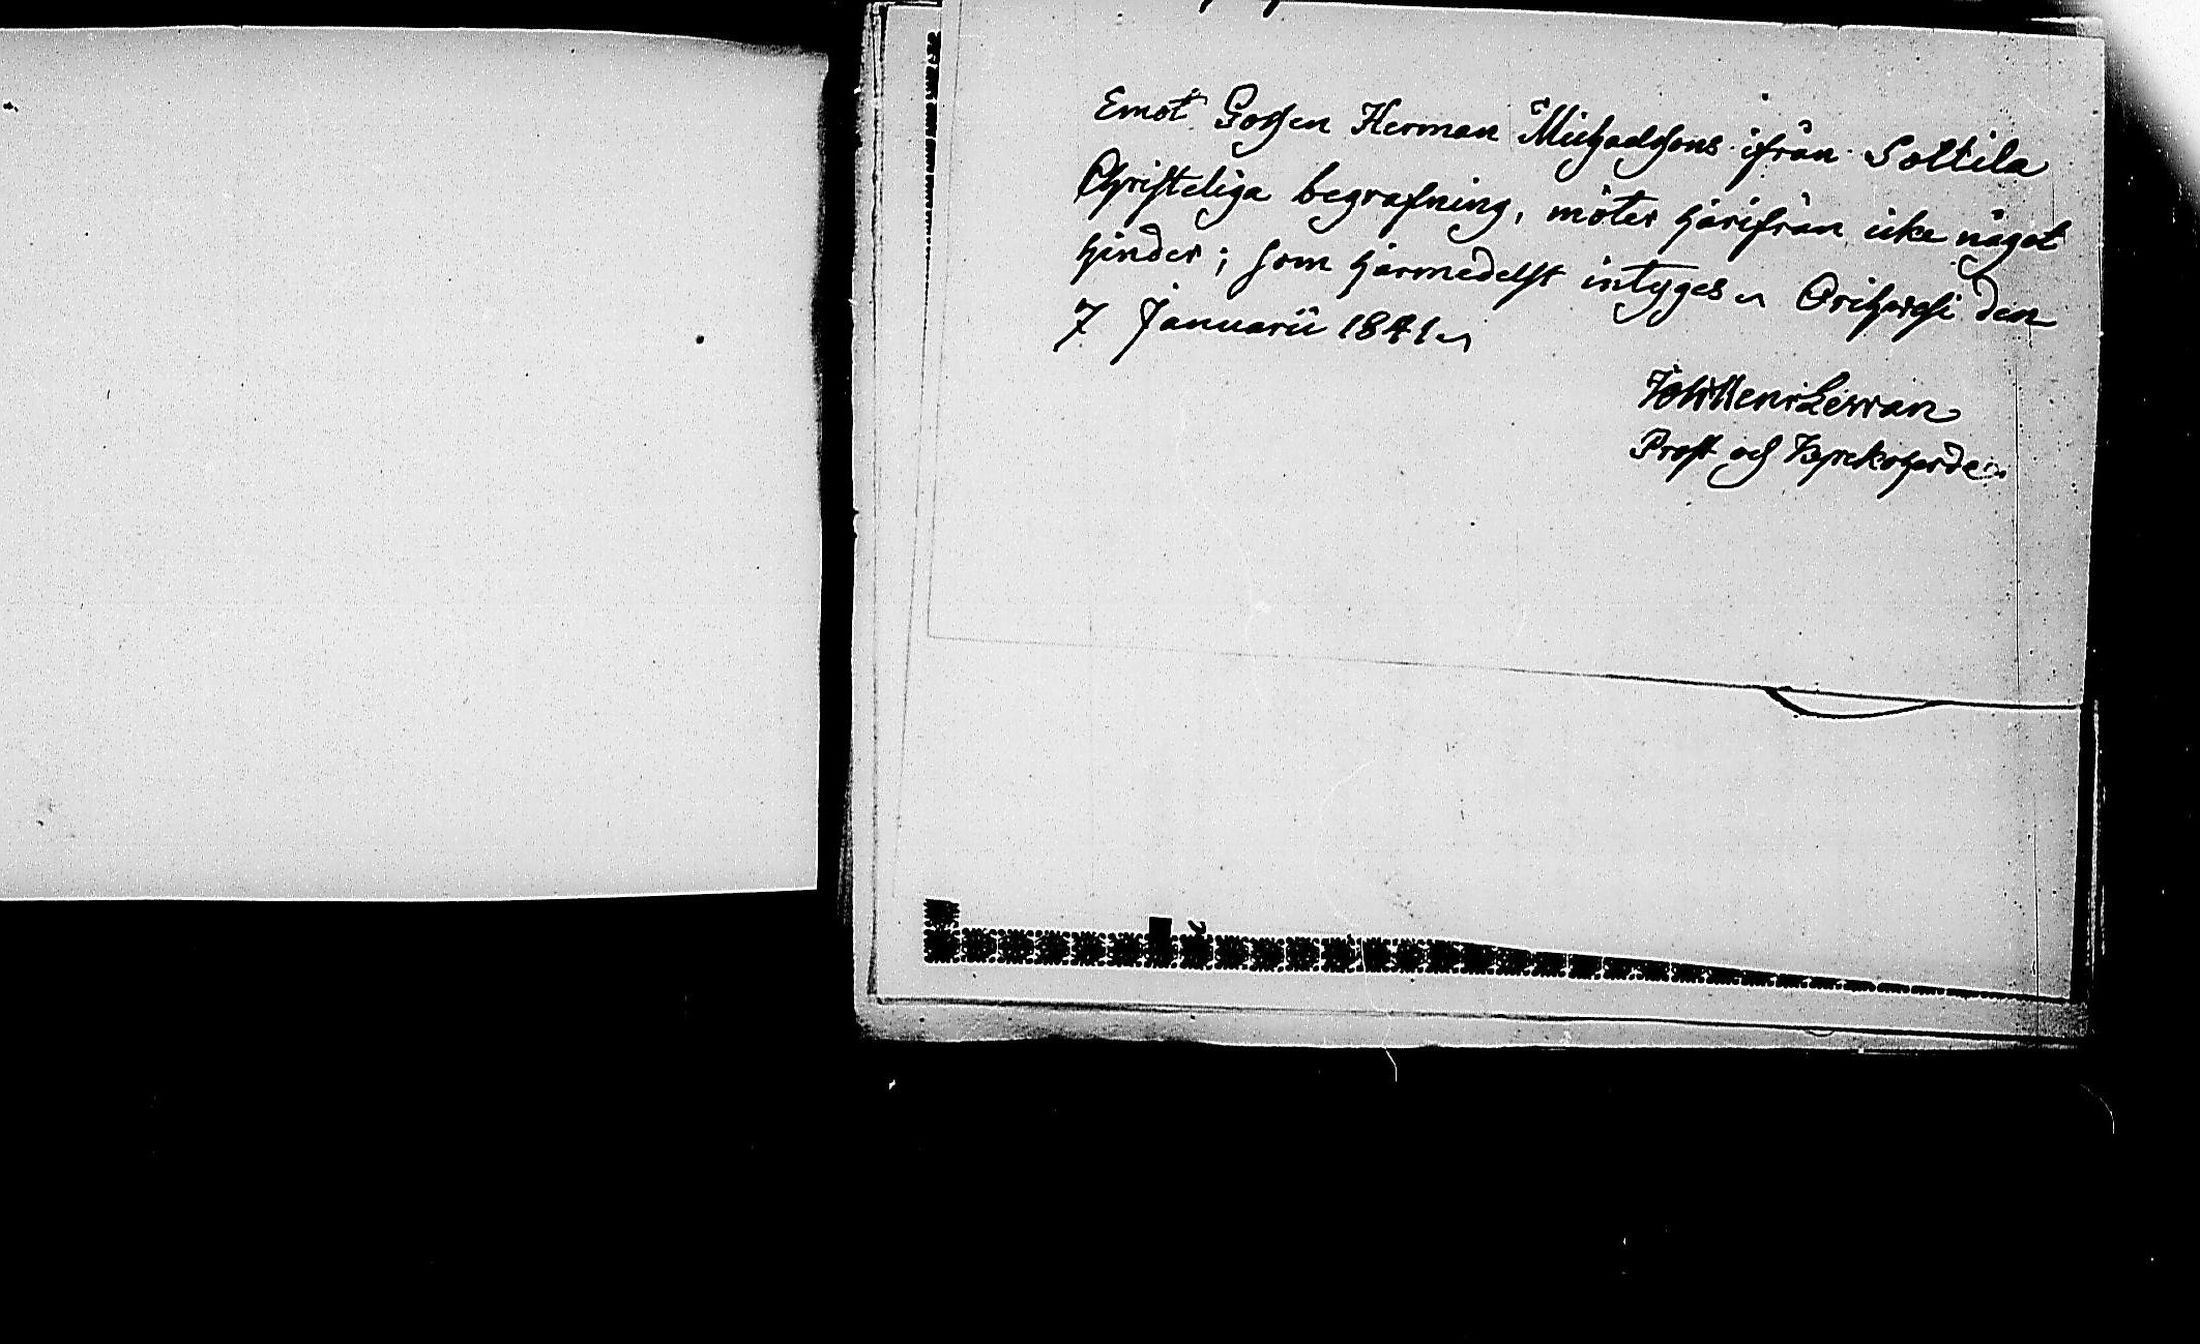 Emot Gossen Herman Michaelssons ifrån Soltila
Christeliga begrafning, möter härifrån icke något
hinder; som härmedelst intyges Orihvesi den
7 Januarii 1841
Prost och Kyrkoherde